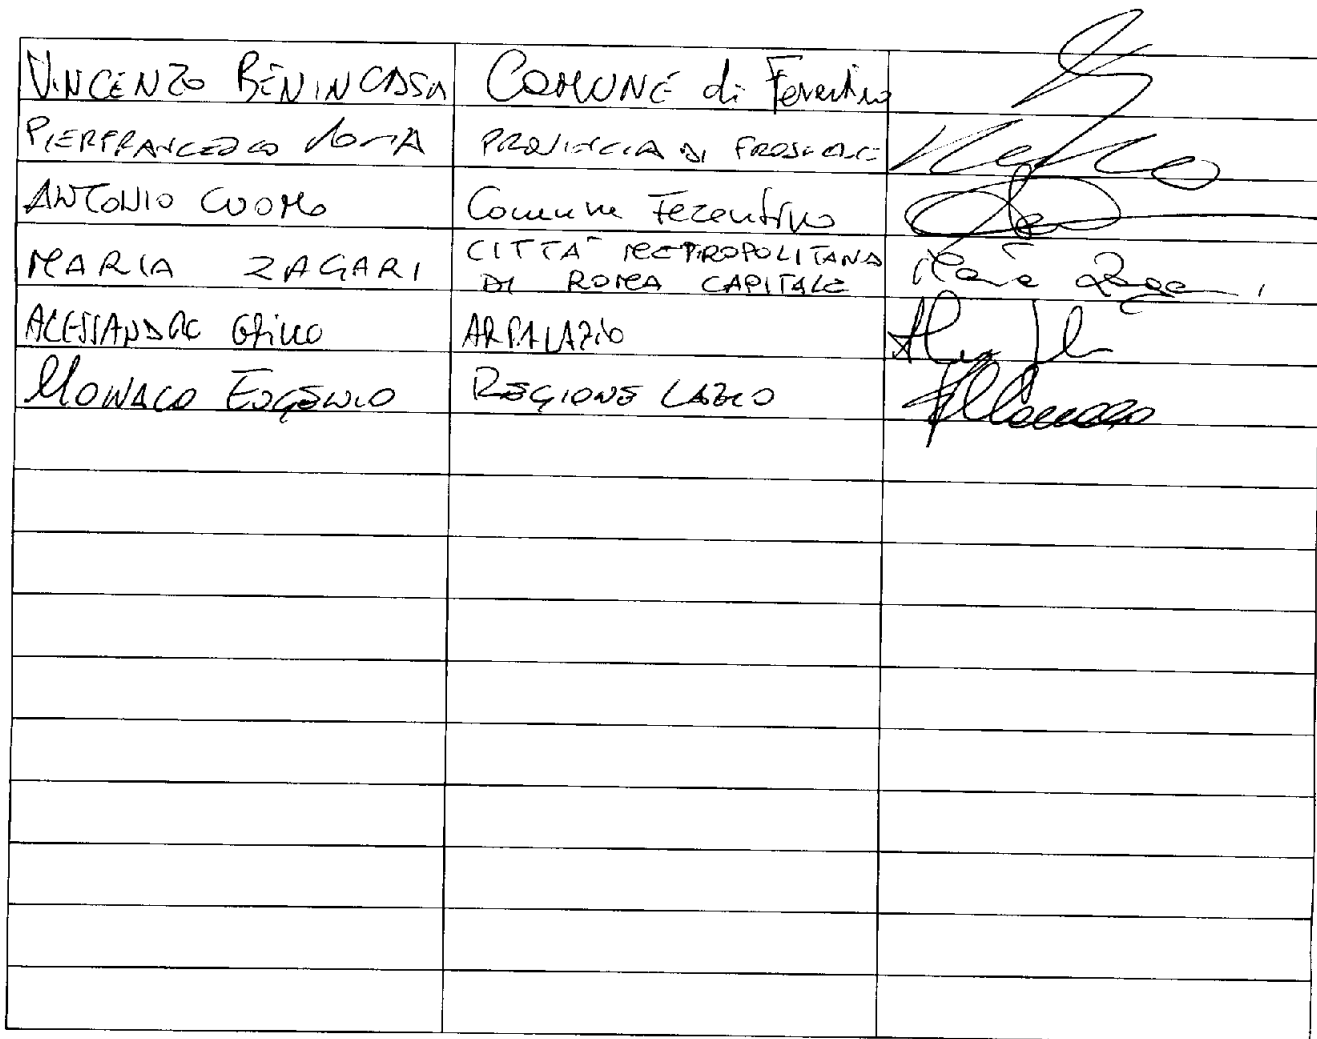 VINCENZO BENINCASA COMUNE di Ferentino
PIERFRANCESCO PROVINCIA DI FROSINONE
ANTONIO CUOMO Comune Ferentino
MARIA ZAGARI CITTÀ METROPOLITANA
DI ROMA CAPITALE Maria Zagari
ALESSANDRO ARPA LAZIO
MONACO EUGENIO REGIONE LAZIO